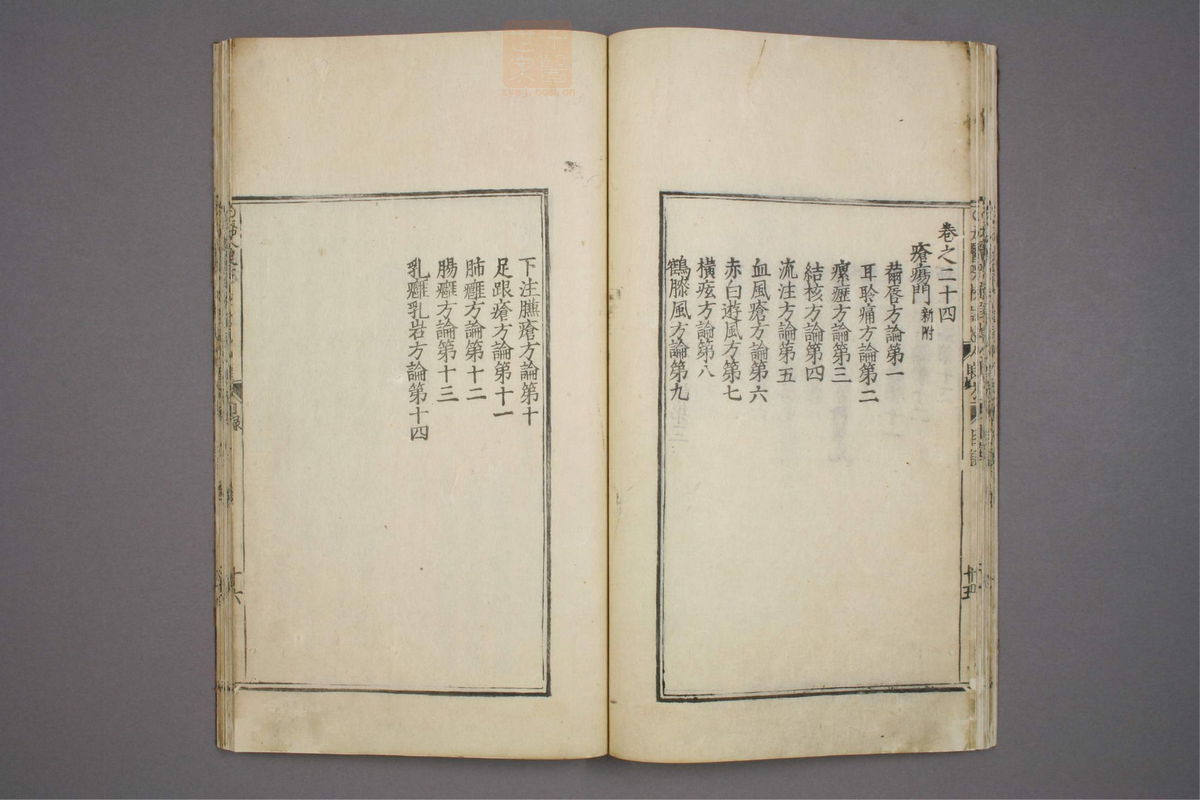 卷之二十四
瘡瘍門新附
繭唇方論第一
耳聆痛方論第二
瘰癧方論第三
結核方論第四
流注方論第五
血風瘡方論第六
赤白遊風方第七
橫痃方論第八
鶴膝風方論第九
十五
下注臁瘡方論第十
足跟瘡方論第十一
肺癰方論第十二
腸癰方論第十三
乳癰乳岩方論第十四
目錄
十六